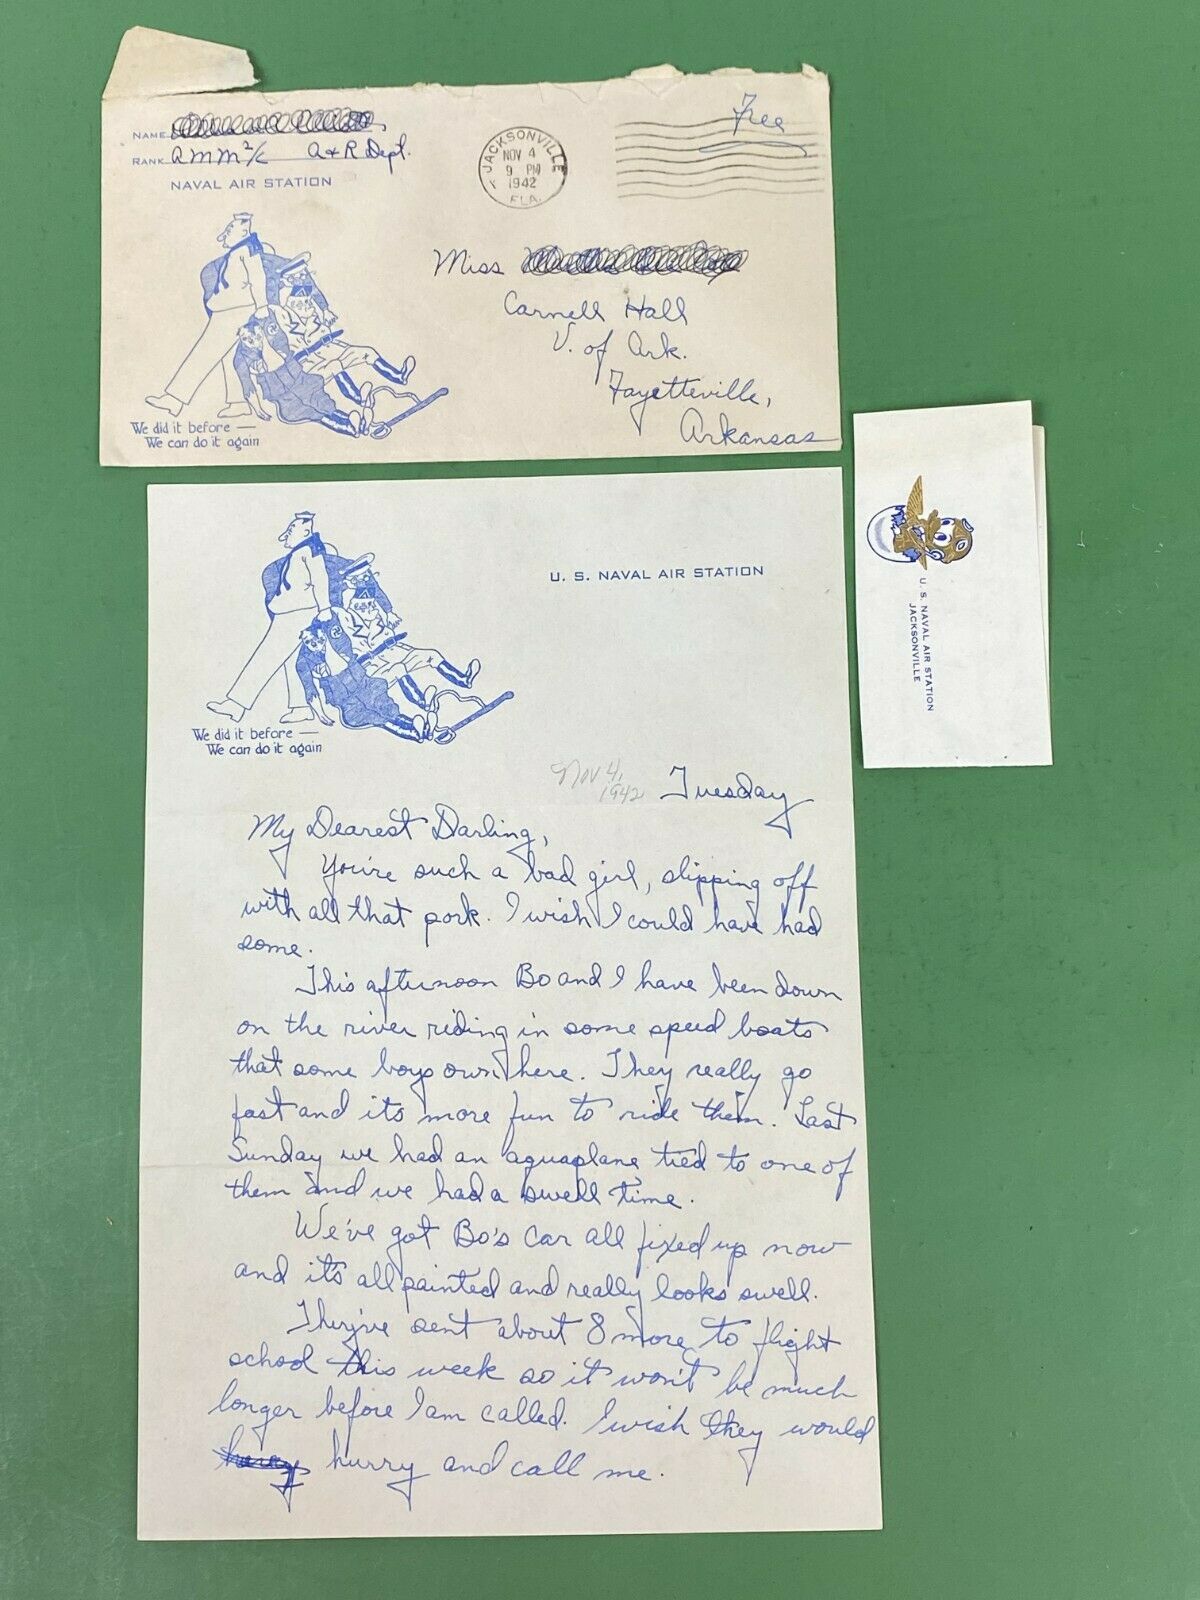 NAME
RANK AMM2/c A+R Dept.
NAVAL AIR STATION
JACKSONVILLE
NOV 4
9 PM
1942
FLA.
Free
We did it before —
We can do it again
Miss
Carnell Hall
U. of Ark.
Fayetteville,
Arkansas
U. S. NAVAL AIR STATION
JACKSONVILLE
U. S. NAVAL AIR STATION
We did it before —
We can do it again
Nov 4,
1942
Tuesday
My Dearest Darling,
You're such a bad girl, slipping off
with all that pork. I wish I could have had
some.
This afternoon Bo and I have been down
on the river riding in some speed boats
that some boys own here. They really go
fast and its more fun to ride them. Last
Sunday we had an aquaplane tied to one of
them and we had a swell time.
We've got Bo's car all fixed up now
and it's all painted and really looks swell.
They've sent about 8 more to flight
school this week so it won't be much
longer before I am called. I wish they would
hurry and call me.